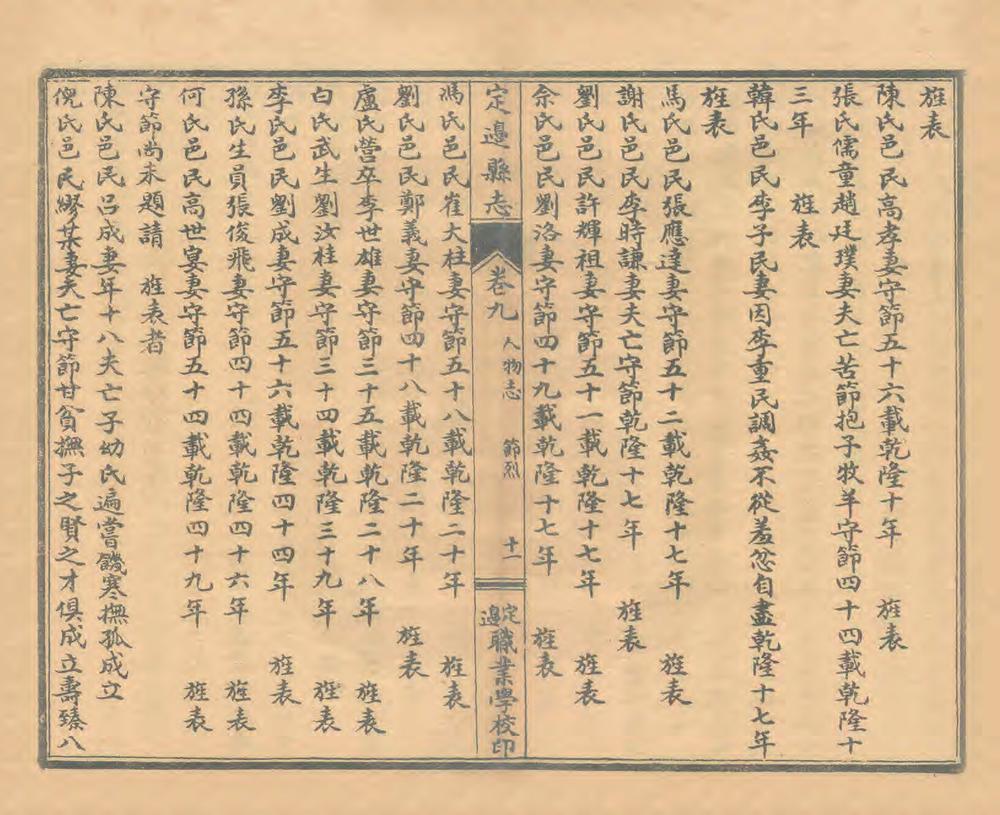 旌表
陳氏邑民高孝妻守節五十六載乾隆十年 旌表
張氏儒童趙廷璞妻夫亡苦節抱子牧羊守節四十四載乾隆十
三年 旌表
韓氏邑民李子民妻因李重民調姦不從羞忿自盡乾隆十七年
旌表
馬氏邑民張應達妻守節五十二載乾隆十七年 旌表
謝氏邑民李時謙妻夫亡守節乾隆十七年 旌表
劉氏邑民許輝祖妻守節五十一載乾隆十七年 旌表
余氏邑民劉洛妻守節四十九載乾隆十七年 旌表
定邊縣志 卷九 人物志 節烈 十一 定邊職業學校印
馮氏邑民崔大柱妻守節五十八載乾隆二十年 旌表
劉氏邑民鄭義妻守節四十八載乾隆二十年 旌表
盧氏營卒李世雄妻守節三十五載乾隆二十八年 旌表
白氏武生劉汝桂妻守節三十四載乾隆三十九年 旌表
李氏邑民劉成妻守節五十六載乾隆四十四年 旌表
孫氏生員張俊飛妻守節四十四載乾隆四十六年 旌表
何氏邑民高世宴妻守節五十四載乾隆四十九年 旌表
守節尚未題請 旌表者
陳氏邑民呂成妻年十八夫亡子幼氏遍嘗饑寒撫孤成立
倪氏邑民繆某妻夫亡守節甘貧撫子之賢之才俱成立壽臻八